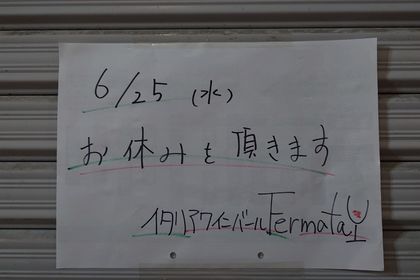 6/25 (水)
お休みを頂きます
イタリアワインバール Fermata